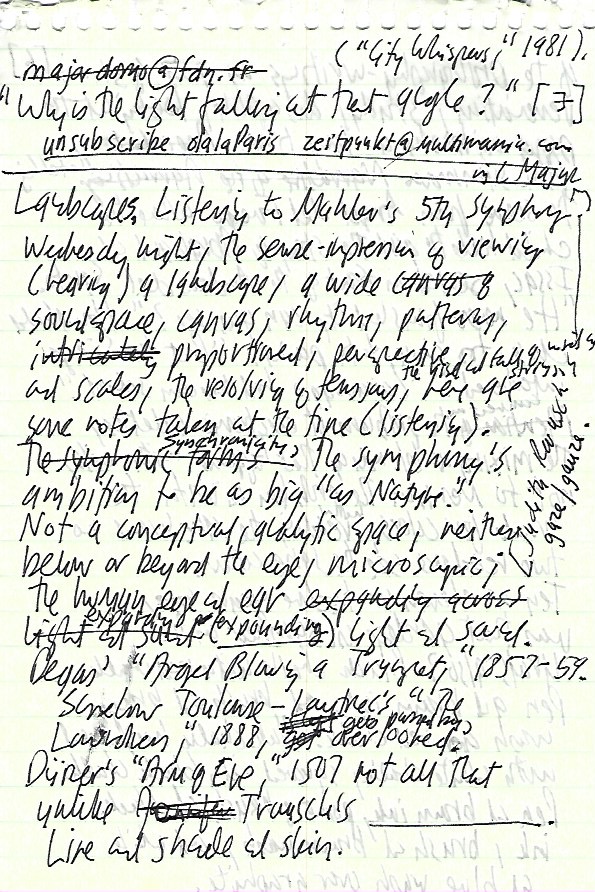 ("City Whispers," 1981).
majordomo@fdn.fr
"Why is the light falling at that angle?" [7]
unsubscribe olalaParis zeitpunkt@multimania.com
in C Major
Landscapes. Listening to Mahler's 5th Symphony
Wednesday night, the sense-impression of viewing
(hearing) a landscape, a wide canvas of
soundspace, canvas, rhythm, patterns,
intricately proportioned, perspective,
and scales, the resolving of tensions, the rise and fall, here are
some notes taken at the time (listening).
The symphonic forms synchronicity, The symphony's
ambition to be as big "as Nature."
Not a conceptual, analytic space, neither
below or beyond the eye, microscopic;
the human eye and ear expanding across
light and sound expanding (expounding) light and sound.
Degas' "Angel Blowing a Trumpet," 1857-59.
Somehow Toulouse-Lautrec's "The
Laundress," 1888, gets passed by,
got overlooked.
Dürer's "Arm of Eve," 1507 not all that
unlike Trausch's
Line and shade and skin.
Judith Rausch
gaze/gauze.